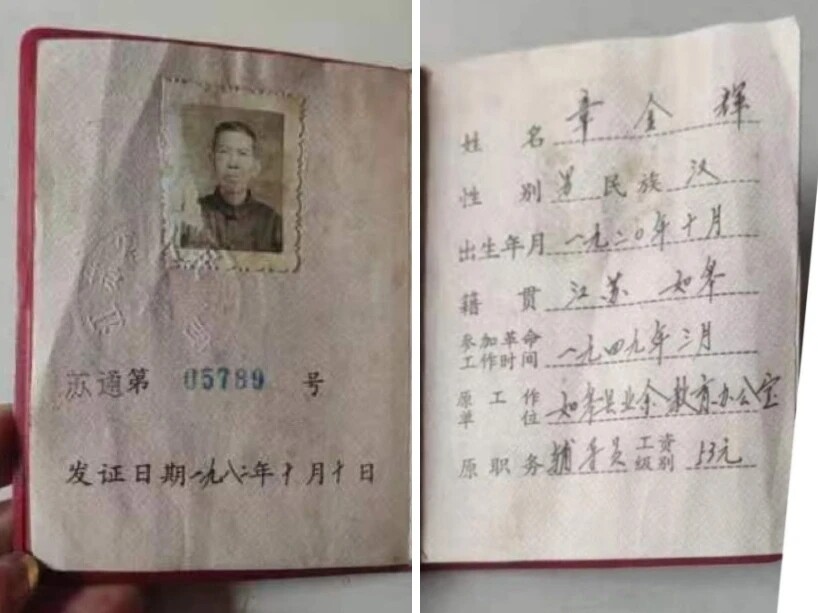 苏通第 05789 号
发证日期一九八二年十月十日
姓名 章金辉
性别 男 民族 汉
出生年月 一九二〇年十月
籍贯 江苏 如皋
参加革命
工作时间 一九四九年三月
原工作
单位 如皋县业余教育办公室
原职务 辅导员 工资
级别 53元